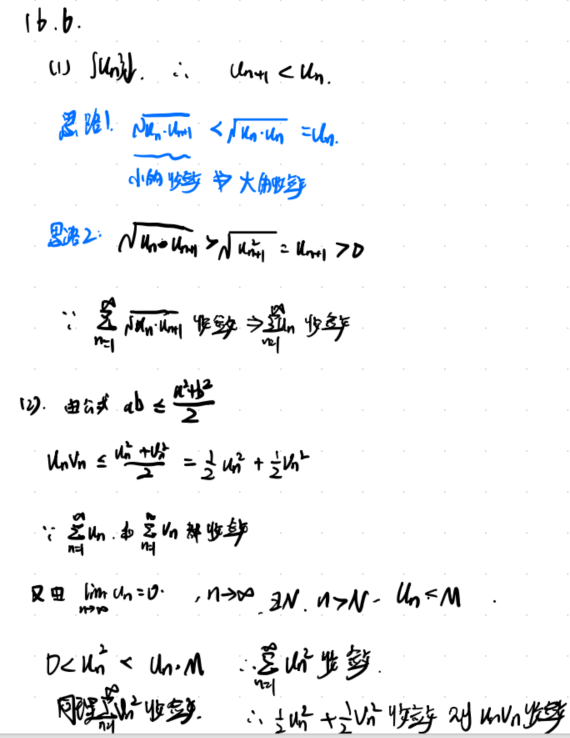 16.6.
(1) {Un}↓. ∴ Un+1 < Un.
思路1. √(Un·Un+1) < √(Un·Un) = Un.
小的收敛 ⇏ 大的收敛
思路2: √(Un·Un+1) > √(U²n+1) = Un+1 > 0
∵ ∑(n=1,∞) √(Un·Un+1) 收敛 ⇒ ∑(n=1,∞) Un 收敛
(2). 由公式 ab ≤ (a²+b²)/2
UnVn ≤ (Un²+Vn²)/2 = ½Un² + ½Vn²
∵ ∑(n=1,∞) Un. 和 ∑(n=1,∞) Vn 都收敛
又由 lim(n→∞) Un = 0. , n→∞ ∃N. n>N. Un ≤ M .
0 < Un² < Un·M ∴ ∑(n=1,∞) Un² 收敛.
同理 ∑(n=1,∞) Vn² 收敛. ∴ ½Un² + ½Vn² 收敛 则 UnVn 收敛